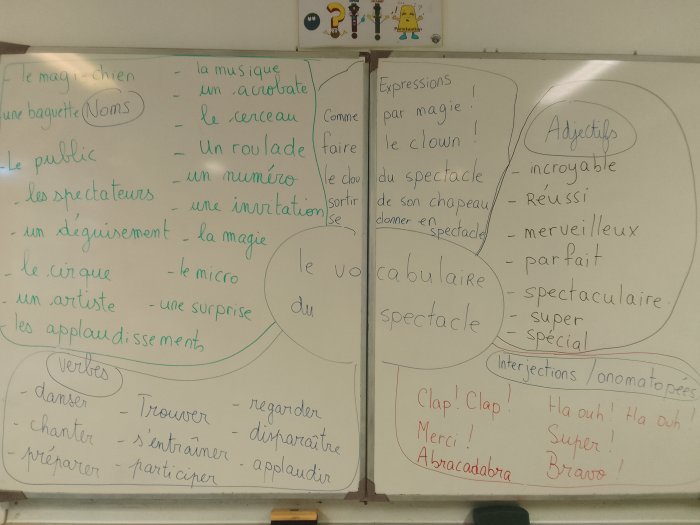 - le magi-chien
une baguette
Noms
- Le public
- les spectateurs
- un déguisement
- le cirque
- un artiste
- les applaudissements
- la musique
- un acrobate
- le cerceau
- Un roulade
- un numéro
- une invitation
- la magie
- le micro
- une surprise
Expressions
Comme par magie !
faire le clown !
le clou du spectacle
sortir de son chapeau
se donner en spectacle
Adjectifs
- incroyable
- Réussi
- merveilleux
- parfait
- spectaculaire
- super
- spécial
le vocabulaire
du spectacle
Verbes
- danser
- chanter
- préparer
- Trouver
- s'entraîner
- participer
- regarder
- disparaître
- applaudir
Interjections / onomatopées
Clap ! Clap !
Merci !
Abracadabra
Ha ouh ! Ha ouh !
Super !
Bravo !